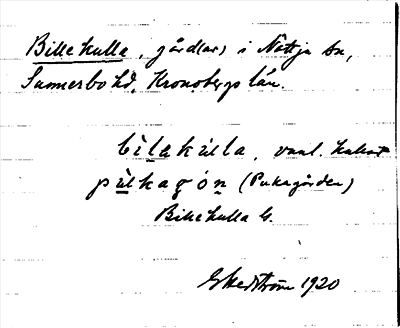 Billekulla, gård(ar) i Nöttja sn,
Sunnerbo hd, Kronobergs län.
bìlakùlla, vanl. kallat
pùkagón (Pukagården)
Billekulla G.
Ekedström 1920